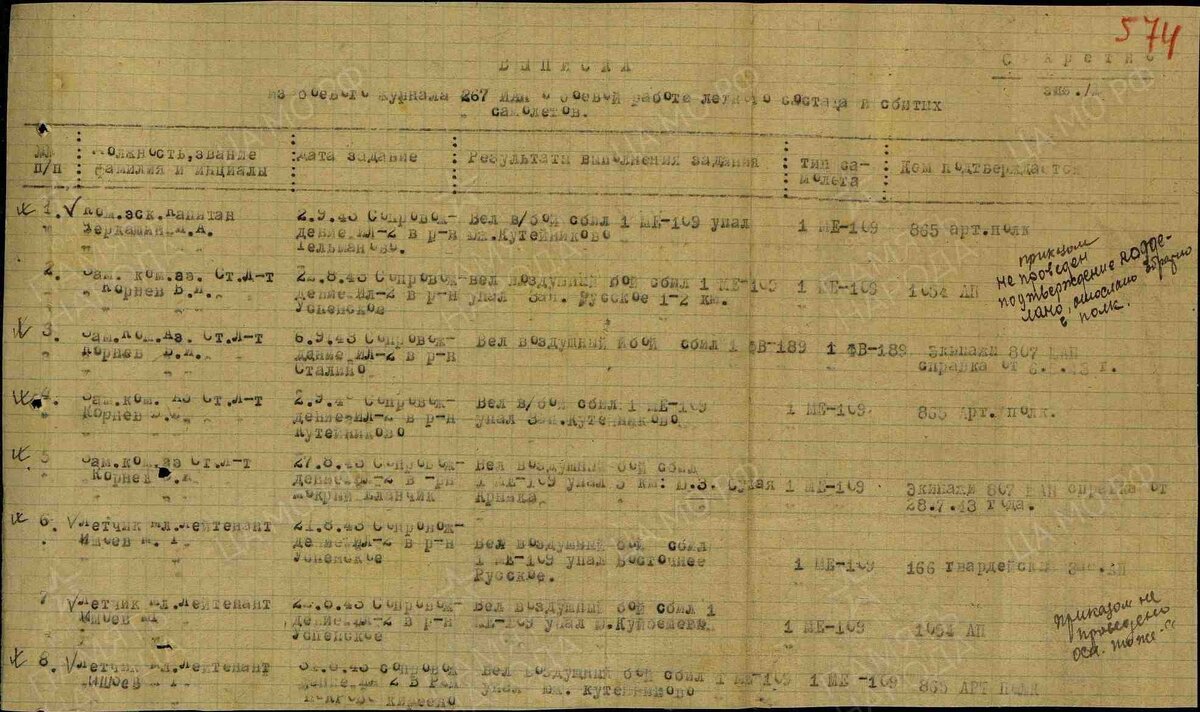 574
Секретно
экз. /1
ВЫПИСКА
из боевого журнала 267 ИАП о боевой работе летного состава и сбитых
самолетов.
№№ п/п
Должность, звание фамилия и инциалы
Дата задание
Результаты выполнения задания
Тип самолета
Чем подтверждается
1. Ком.эск.капитан
2.9.43 Сопровождение ИЛ-2 в р-н Тельманово.
Вел в/бой сбил 1 МЕ-109 упал юж.Кутейниково
1 МЕ-109
865 арт.полк
2. Зам. ком.аэ. Ст.Л-т Корнев
Сопровождение ИЛ-2 в р-н Успенское
вел воздушный бой сбил 1 МЕ-109 упал Зап. Русское 1-2 км.
1 МЕ-109
1054 АП
приказом
не проведен
подтверждение
отослано обратно
в полк.
3. Зам.Ком.Аэ. Ст.Л-т Корнев
6.9.43 Сопровождение ИЛ-2 в р-н Сталино
Вел воздушный бой сбил 1 ФВ-189
1 ФВ-189
Экипажи 807 ШАП справка от
4. Зам.ком. Аэ Ст.Л-т Корнев
Сопровождение ИЛ-2 в р-н Кутейниково
Вел в/бой сбил 1 МЕ-109 упал Зап.Кутейниково
1 МЕ-109.
865 Арт. полк.
5 Зам.ком.аэ Ст.Л-т Корнев
27.8.43 Сопровождение ИЛ-2 в р-н Мокрый Еланчик
Вел воздушный бой сбил 1 МЕ-109 упал 3 км. Ю.З. Сухая Крынка
1 МЕ-109
Экипажи 807 ШАП справка от 28.7.43 года.
6. Летчик мл.лейтенант
21.8.43 Сопровождение ИЛ-2 в р-н Успенское
Вел воздушный бой сбил 1 МЕ-109 упал Восточнее Русское.
1 МЕ-109
166 гвардейский
7. Летчик мл.лейтенант
Сопровождение ИЛ-2 в р-н Успенское
Вел воздушный бой сбил 1 МЕ-109 упал
1 МЕ-109
1054 АП
приказом не
проведено
8. Летчик мл.лейтенант
сопровождение
Вел воздушный бой сбил 1 МЕ-109 упал юж. Кутейниково
1 МЕ-109
865 АРТ ПОЛК